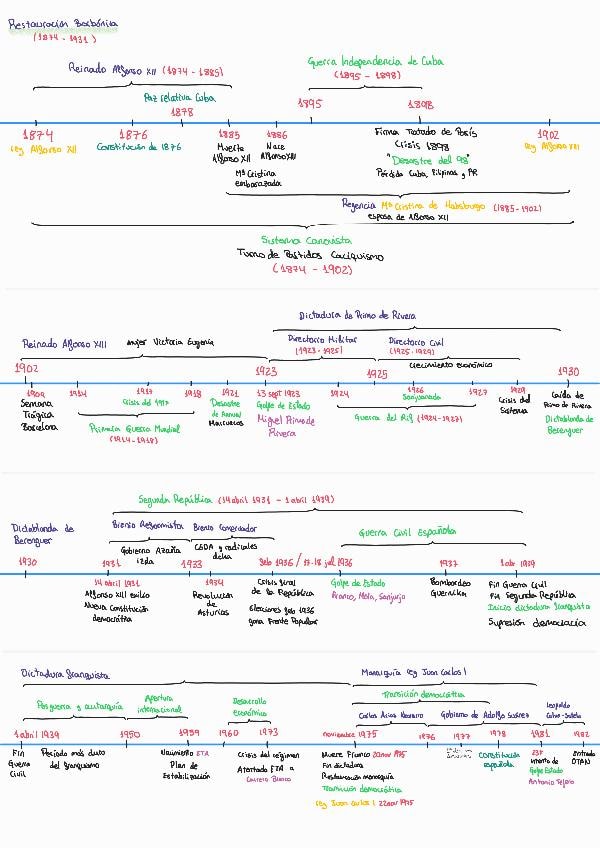 Restauración Borbónica
(1874 - 1931)
Reinado Alfonso XII (1874 - 1885)
Guerra Independencia de Cuba
(1895 - 1898)
Paz relativa Cuba
1878
1895
1898
1874
1876
1885
1886
1902
rey Alfonso XII
Constitución de 1876
Muerte
Alfonso XII
Mª Cristina
embarazada
Nace
Alfonso XIII
Firma Tratado de París
Crisis 1898
"Desastre del 98"
Pérdida Cuba, Filipinas y PR
rey Alfonso XIII
Regencia Mª Cristina de Habsburgo (1885-1902)
esposa de Alfonso XII
Sistema Canovista
Turno de Partidos Caciquismo
(1874 - 1902)
Dictadura de Primo de Rivera
Reinado Alfonso XIII
mujer Victoria Eugenia
Directorio Militar
(1923-1925)
Directorio Civil
(1925-1929)
crecimiento económico
1902
1923
1925
1930
1909
1914
1917
1918
1921
13 sept 1923
1924
1926
1927
1929
Semana
Trágica
Barcelona
Crisis del 1917
Primera Guerra Mundial
(1914-1918)
Desastre
de Annual
Marruecos
Golpe de Estado
Miguel Primo de
Rivera
Sanjuanada
Guerra del Rif (1924-1927)
Crisis del
Sistema
Caída de
Primo de Rivera
Dictablanda de
Berenguer
Segunda República (14 abril 1931 - 1 abril 1939)
Dictablanda de
Berenguer
Bienio Reformista
Bienio Conservador
Guerra Civil Española
Gobierno Azaña
izda
CEDA y radicales
dcha
1930
1931
1933
feb 1936 / 17-18 jul 1936
1937
1 abr 1939
14 abril 1931
Alfonso XIII exilio
Nueva Constitución
democrática
1934
Revolución
de
Asturias
Crisis gral
de la República
Elecciones feb 1936
gana Frente Popular
Golpe de Estado
Franco, Mola, Sanjurjo
Bombardeo
Guernika
Fin Guerra Civil
Fin Segunda República
Inicio dictadura franquista
Supresión democracia
Dictadura franquista
Monarquía rey Juan Carlos I
Posguerra y autarquía
Apertura
internacional
Desarrollo
económico
Transición democrática
Carlos Arias Navarro
Gobierno de Adolfo Suárez
Leopoldo
Calvo-Sotelo
1 abril 1939
1950
1959
1960
1973
noviembre 1975
1976
1977
1978
1981
1982
Fin
Guerra
Civil
Período más duro
del franquismo
Nacimiento ETA
Plan de
Estabilización
Crisis del régimen
Atentado ETA a
Carrero Blanco
Muere Franco 20 nov 1975
Fin dictadura
Restauración monarquía
Transición democrática
rey Juan Carlos I 22 nov 1975
Constitución
española
23F
Intento de
Golpe Estado
Antonio Tejero
Entrada
OTAN